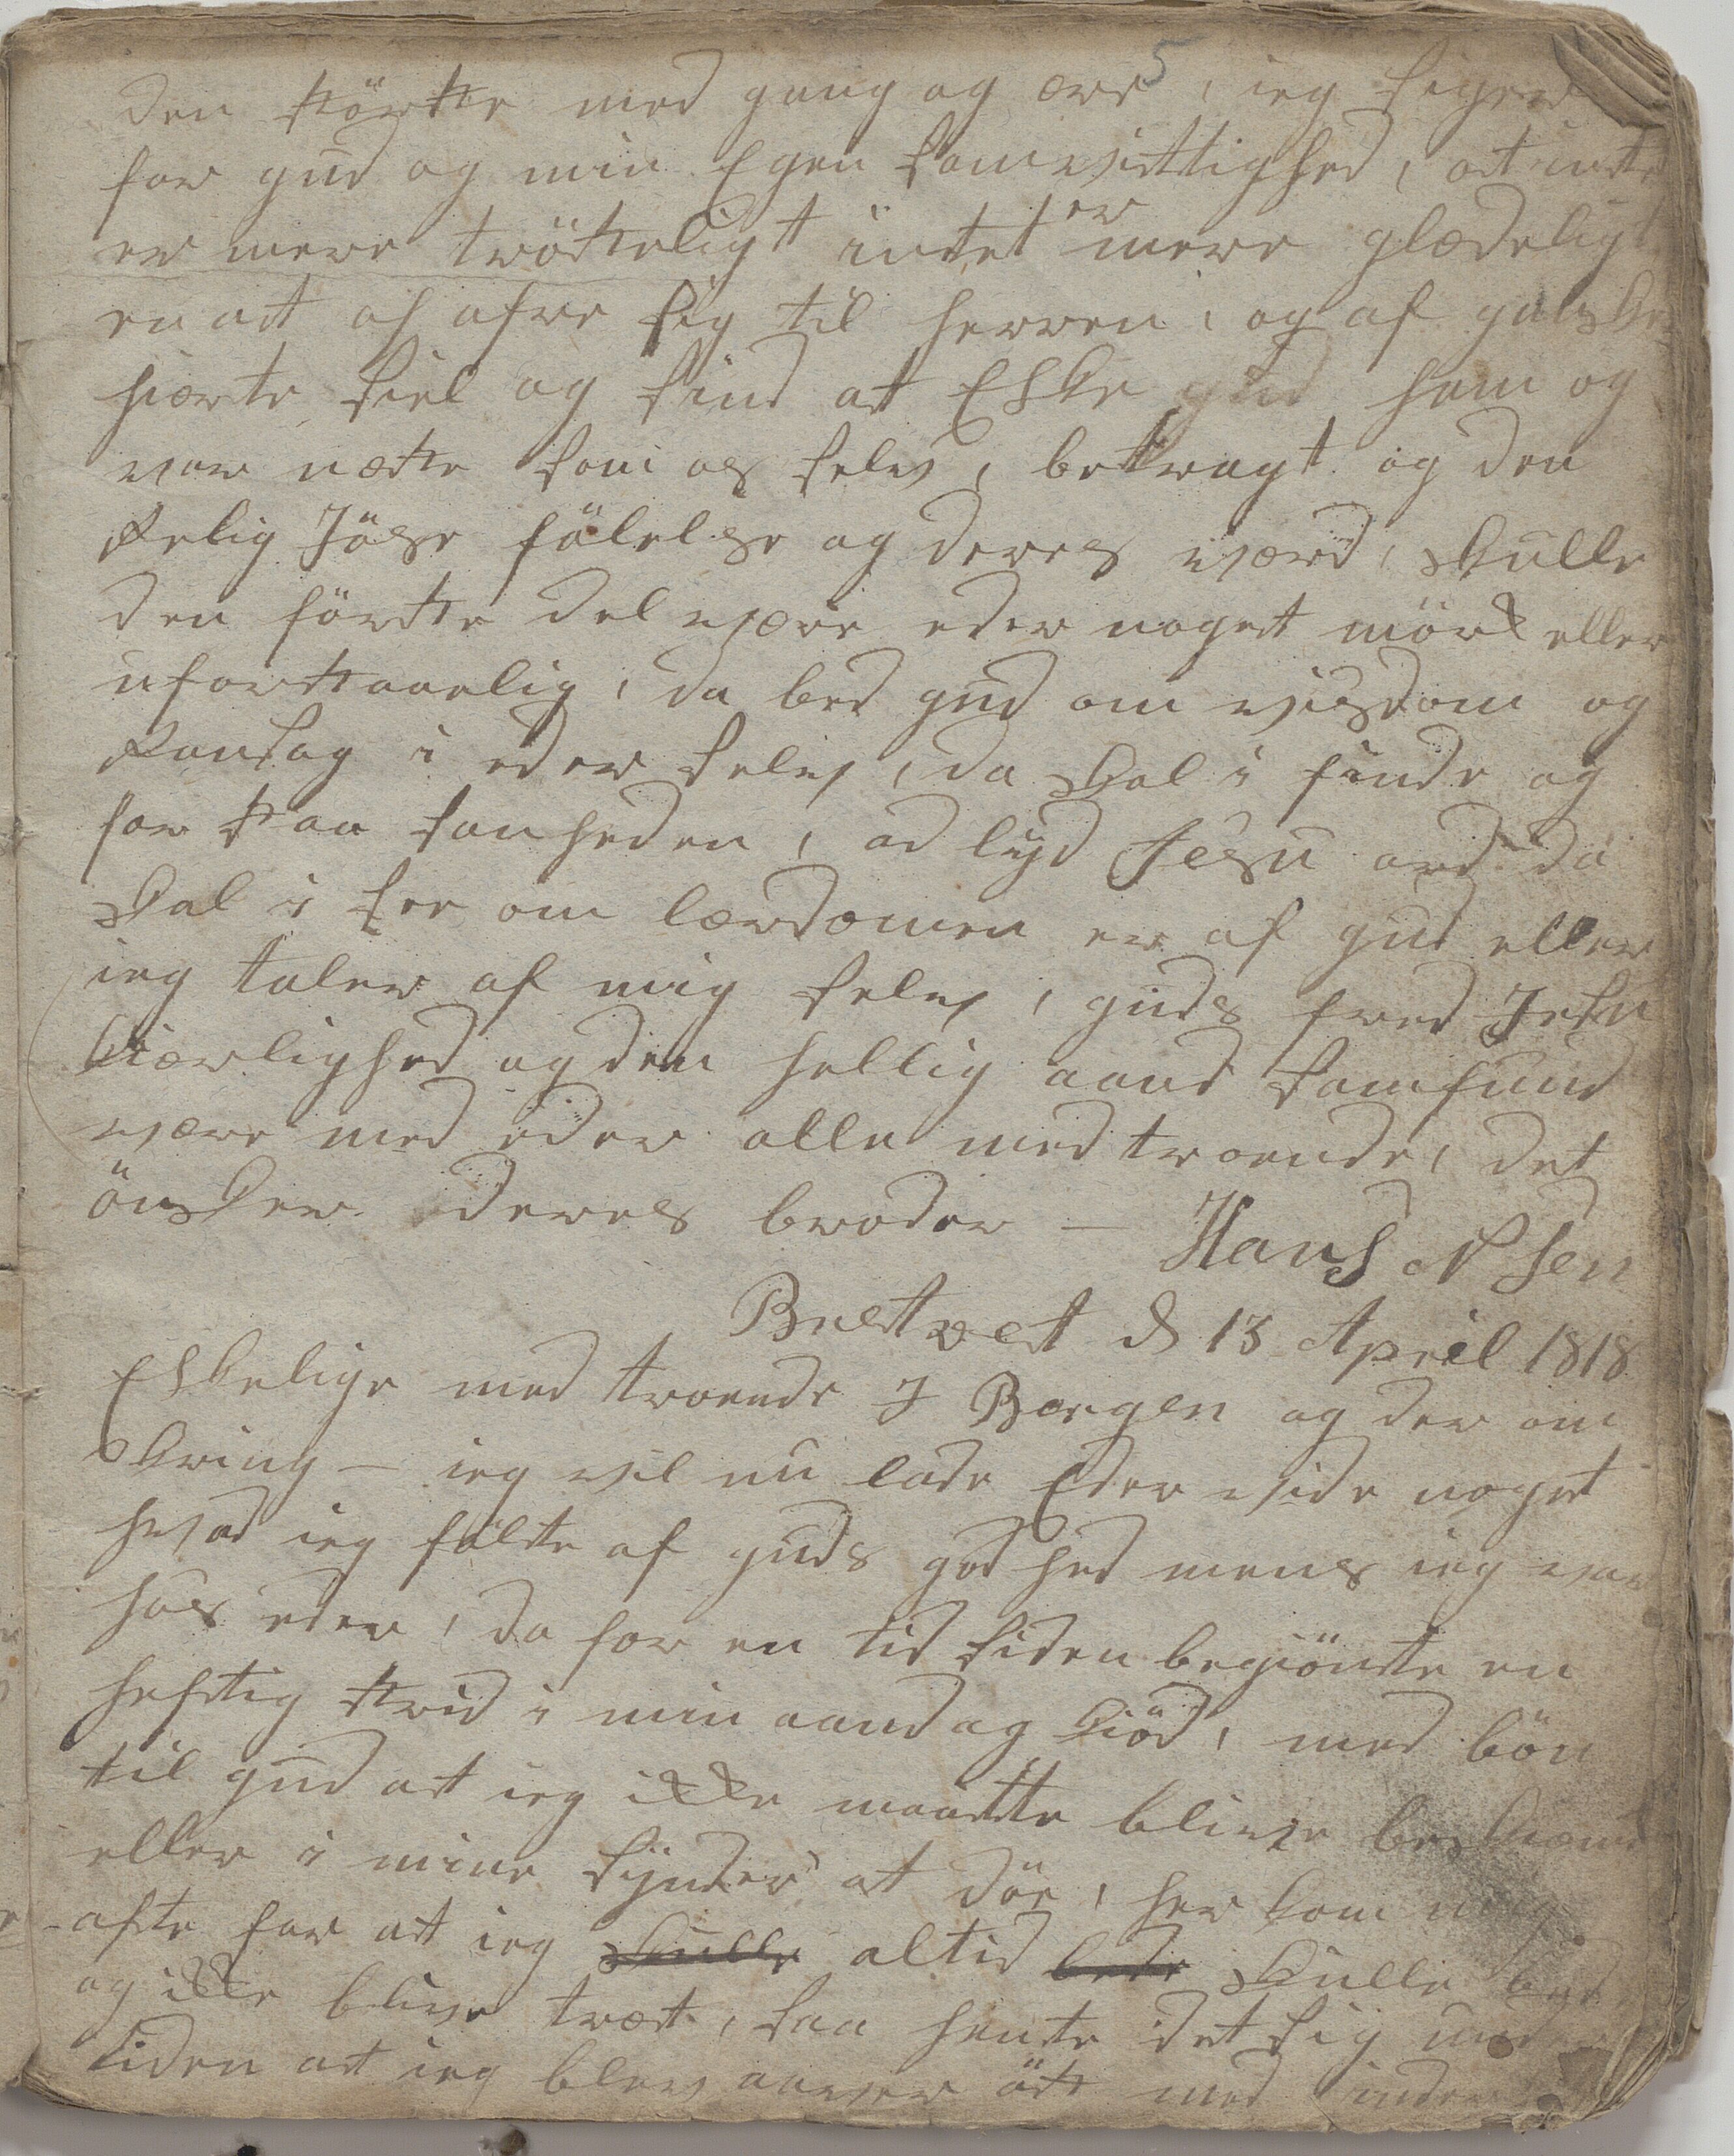 5
den störste med gang og ære, ieg siger
for gud og min Egen samvittighed, at intet
er mere trösteligt intet er mere glædeligt
en at of ofre sig til herren, og af ganske
hierte siel og sind at Elske gud ham og
vor næste som os selv, betragt og den
Relig Jöse fölelse og deres værd, skulle
den förste del være eder noget mörk eller
uforstaaelig, da bed gud om viisdom og
Ransag i eder selv, da skal i finde og
for staa sanheden, ad lyd Jesu ord da
skal i see om lærdomen er af gud eller
ieg taler af mig selv, guds fred Jesu
kiærlighed og den hellig aand samfund
være med eder alle med troende, det
önsker deres broder – Hans N Sen
Bredtvedt d 13 April 1818
Elskelige med troende J Bergen og der om
kring – ieg vil nu lade Eder vide noget
hvad ieg fölte af guds godhed mens ieg var
hos eder, da for en tid siden begiönte en
heftig strid i min aand og kiöd, med bön
til gud at ieg ikke maatte blive beskiæmt
eller i mine synder at döe, her kom mig
ofte for at ieg skulle altid bede skulle bede
og ikke blive træt, saa hente det sig under
tiden at ieg blev aaver öst med inder